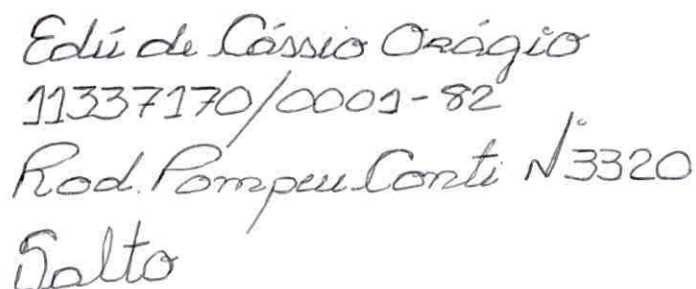 Edú de Cássio Orágio
11337170/0001-82
Rod. Pompeu Conti Nº3320
Salto